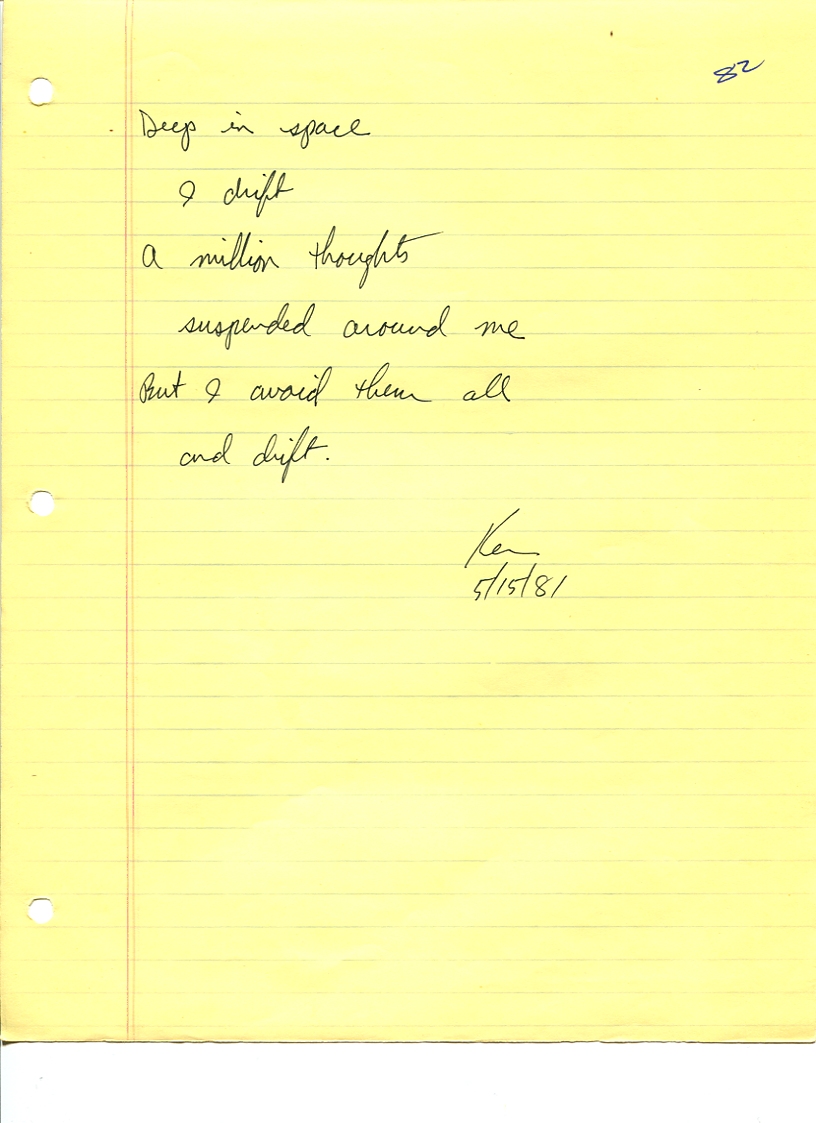 82
Deep in space
I drift
A million thoughts
suspended around me
But I avoid them all
and drift.
Ken
5/15/81